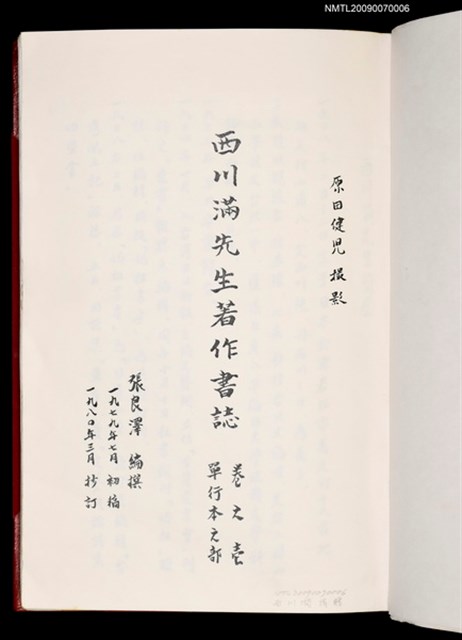 NMTL20090070006
原田健児 撮影
西川滿先生著作書誌
卷之壹
單行本之部
張良澤 編撰
一九七九年七月 初稿
一九八〇年三月 抄訂